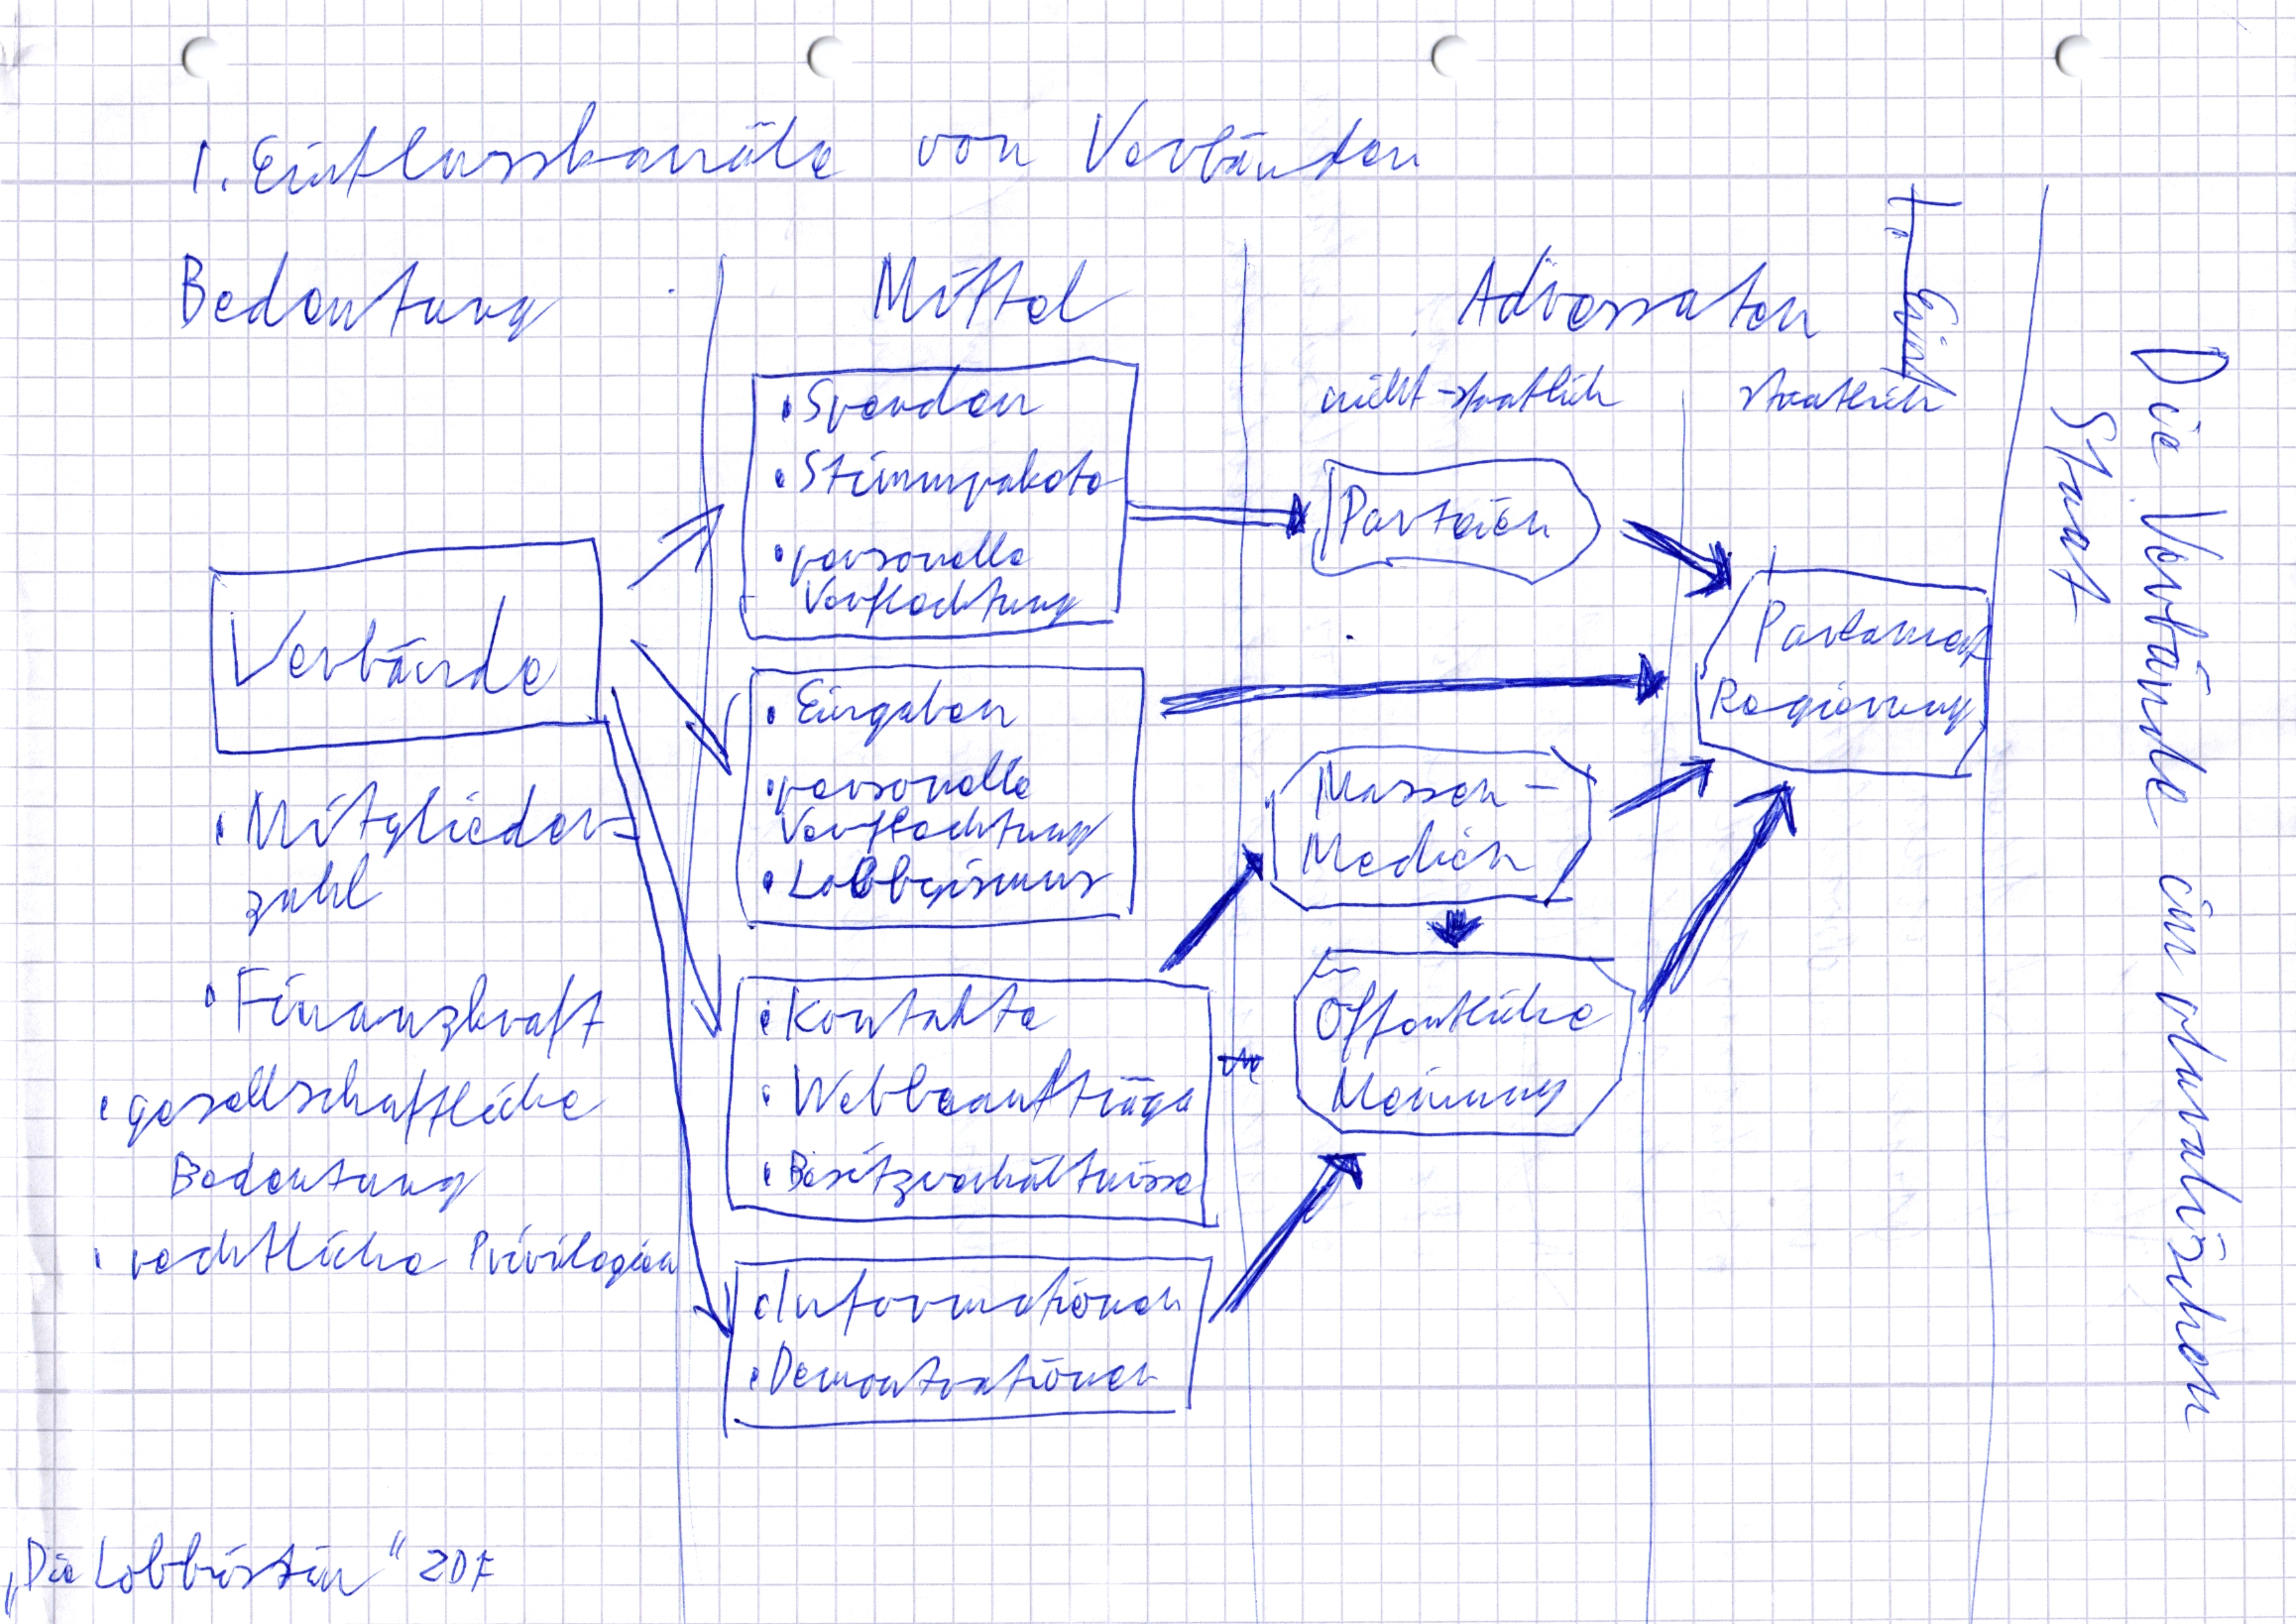 1. Einflusskanäle von Verbänden
Bedeutung
Mittel
Adressaten
nicht-staatlich
staatlich
Verbände
• Mitglieder-
zahl
• Finanzkraft
• gesellschaftliche
Bedeutung
• rechtliche Privilegien
• Spenden
• Stimmpakete
• personelle
Verflechtung
• Eingaben
• personelle
Verflechtung
• Lobbyismus
• Kontakte
• Webbeaufträge
• Besitzverhältnisse
• Informationen
• Demontrationen
Parteien
Massen-
Medien
Öffentliche
Meinung
Parlament
Regierung
Die Verbände im pluralistischen
Staat
„Die Lobbistin" ZDF